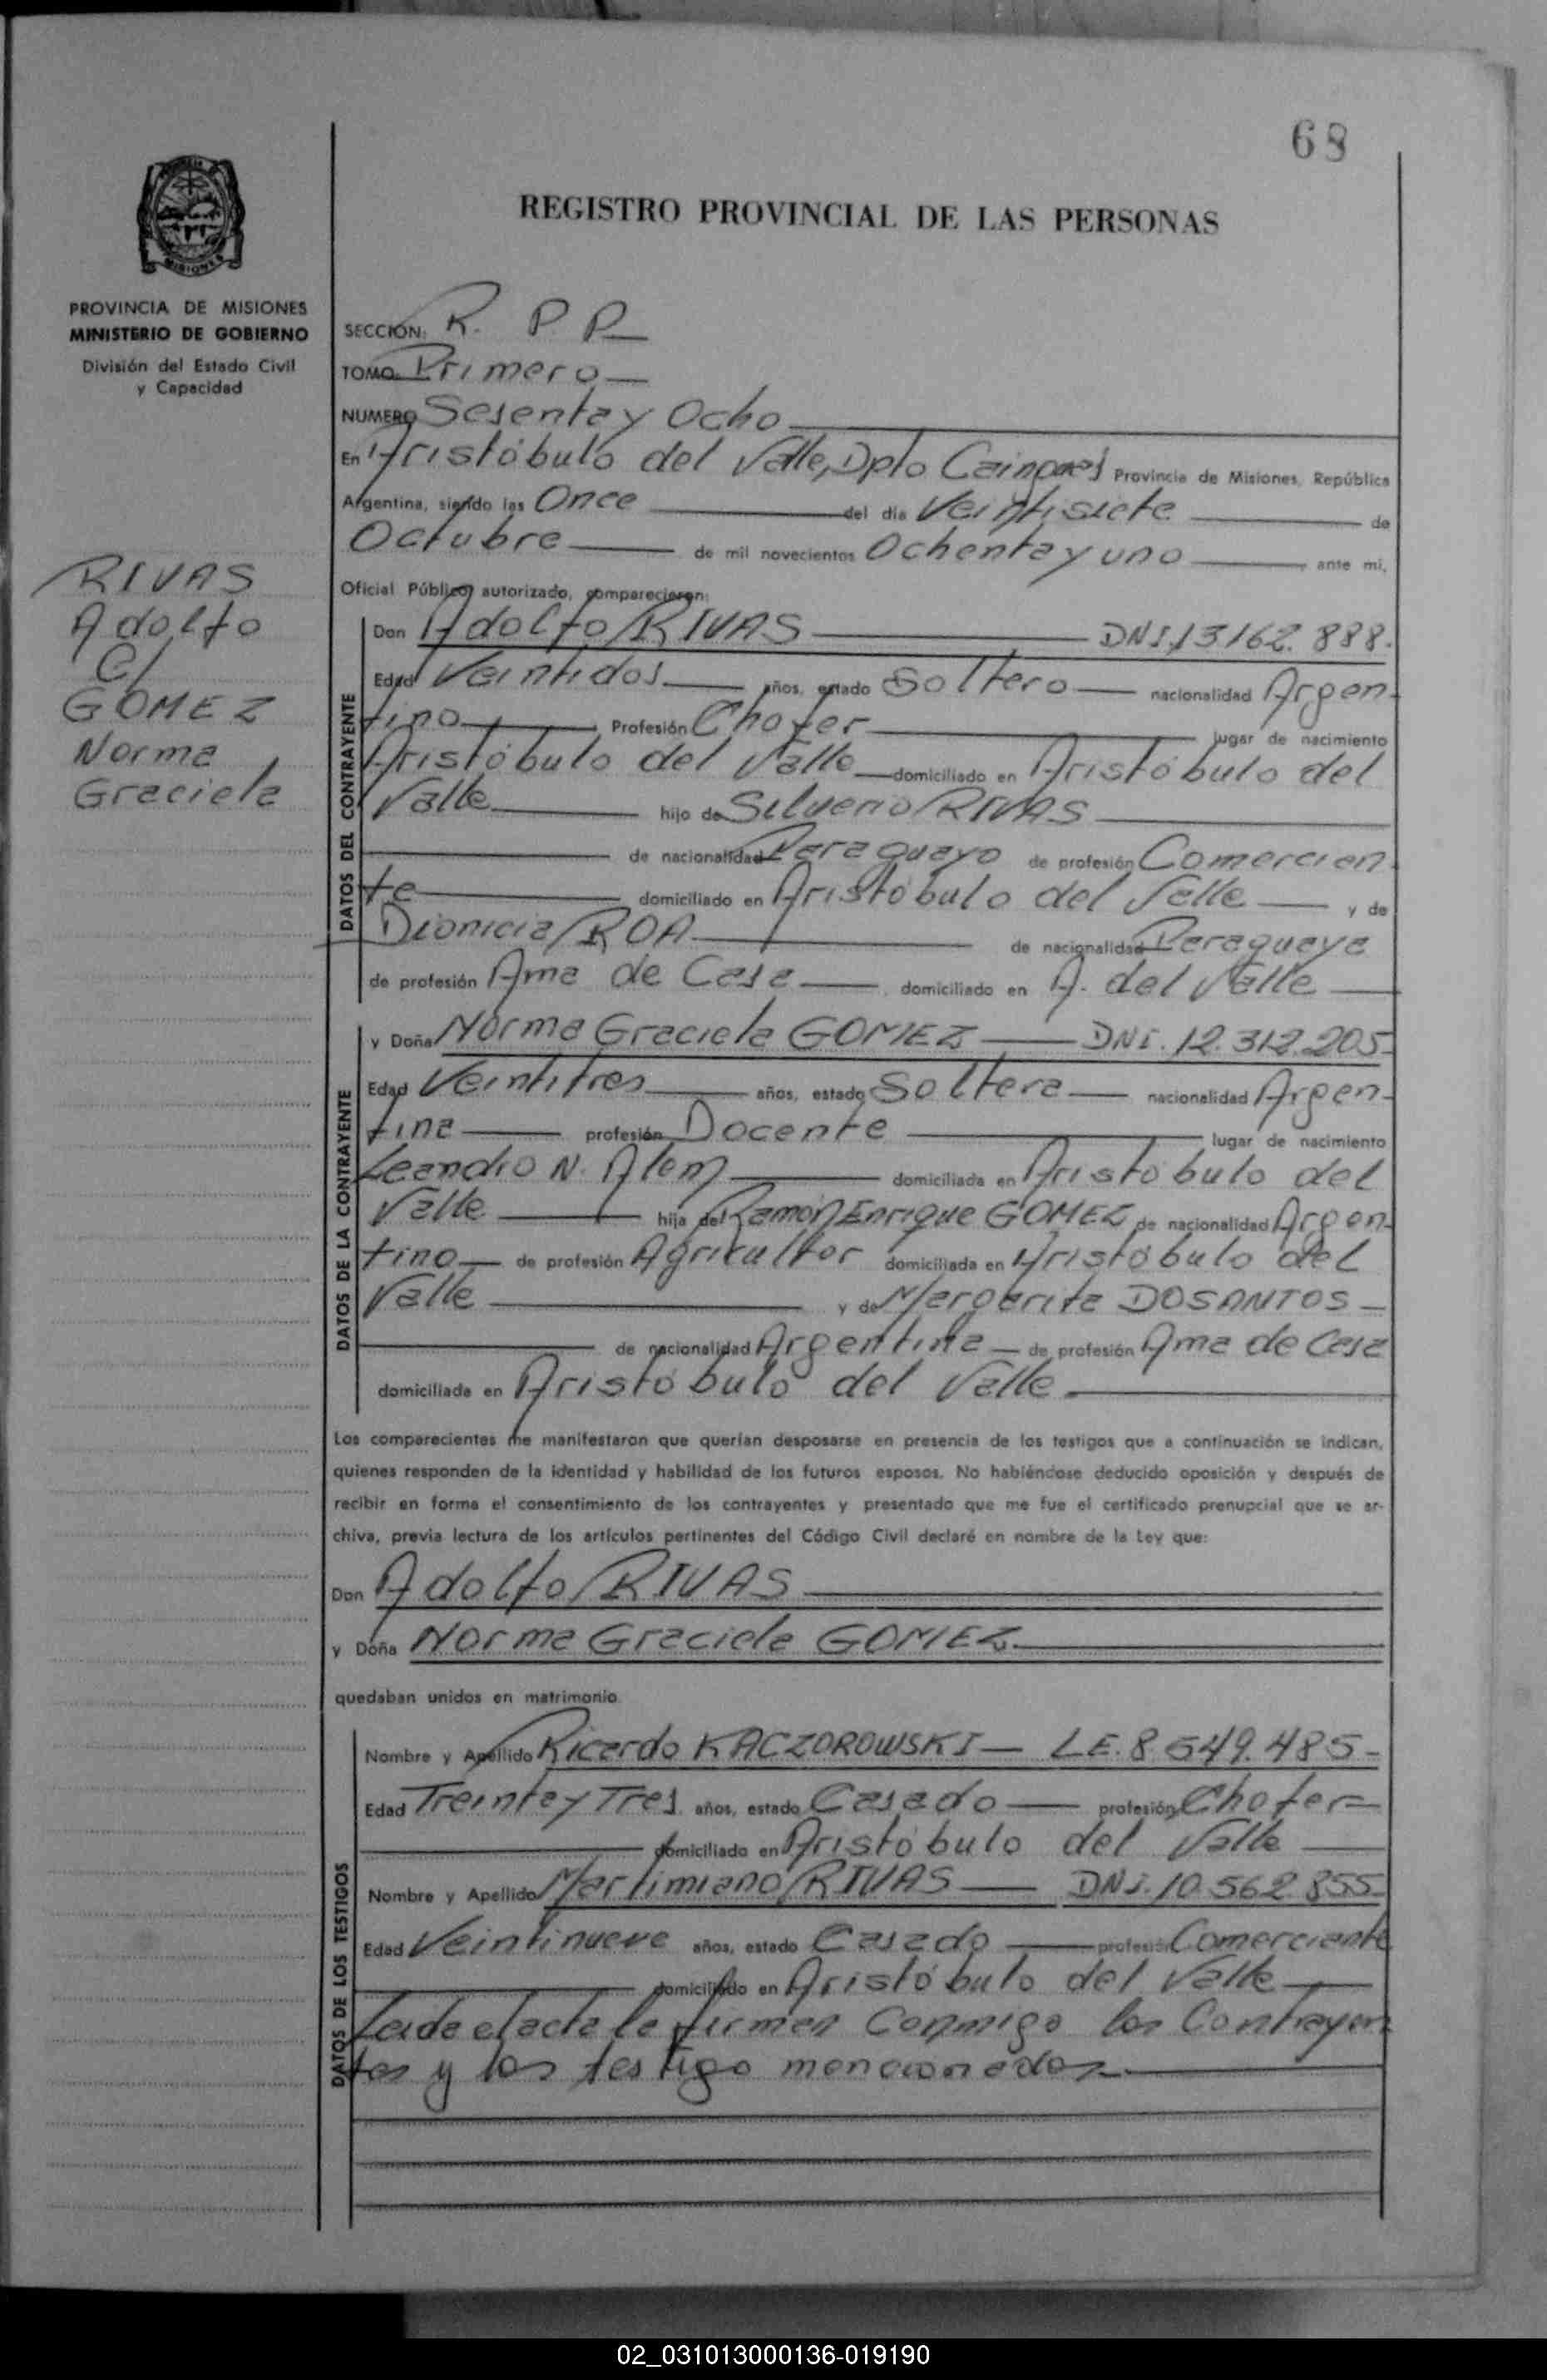 68
REGISTRO PROVINCIAL DE LAS PERSONAS
MISIONES
PROVINCIA DE MISIONES
MINISTERIO DE GOBIERNO
División del Estado Civil
y Capacidad
RIVAS
Adolfo
C/
GOMEZ
Norma
Graciela
SECCION: R. P P
TOMO: Primero
NUMERO Sesenta y Ocho
En Aristóbulo del Valle, Dpto Cainguas Provincia de Misiones, República
Argentina, siendo las Once del día Veintisiete de
Octubre de mil novecientos Ochenta y uno ante mi,
Oficial Público autorizado, comparecieron:
DATOS DEL CONTRAYENTE
Don Adolfo RIVAS DNI. 13162.888.
Edad Veintidos años, estado Soltero nacionalidad Argen-
tino Profesión Chofer lugar de nacimiento
Aristóbulo del Valle domiciliado en Aristóbulo del
Valle hijo de Silverio RIVAS
de nacionalidad Paraguayo de profesión Comercian-
te domiciliado en Aristóbulo del Valle y de
Dionicia ROA de nacionalidad Paraguaya
de profesión Ama de Casa domiciliado en A. del Valle
DATOS DE LA CONTRAYENTE
y Doña Norma Graciela GOMEZ DNI. 12.312.205-
Edad Veintitres años, estado Soltera nacionalidad Argen-
tina profesión Docente lugar de nacimiento
Leandro N. Alem domiciliada en Aristóbulo del
Valle hija de Ramón Enrique GOMEZ de nacionalidad Argen-
tino de profesión Agricultor domiciliada en Aristóbulo del
Valle y de Margarita DOSANTOS
de nacionalidad Argentina de profesión Ama de Casa
domiciliada en Aristóbulo del Valle
Los comparecientes me manifestaron que querían desposarse en presencia de los testigos que a continuación se indican,
quienes responden de la identidad y habilidad de los futuros esposos. No habiéndose deducido oposición y después de
recibir en forma el consentimiento de los contrayentes y presentado que me fue el certificado prenupcial que se ar-
chiva, previa lectura de los artículos pertinentes del Código Civil declaré en nombre de la Ley que:
Don Adolfo RIVAS
y Doña Norma Graciela GOMEZ
quedaban unidos en matrimonio.
DATOS DE LOS TESTIGOS
Nombre y Apellido Ricardo KACZOROWSKI LE. 8.549.485-
Edad Treinta y Tres años, estado Casado profesión Chofer
domiciliado en Aristóbulo del Valle
Nombre y Apellido Martimiano RIVAS DNI. 10.562.855-
Edad Veintinueve años, estado Casado profesión Comerciante
domiciliado en Aristóbulo del Valle
Leida el acta la firman Conmigo los Contrayen
tes y los testigo mencionados
02_031013000136-019190